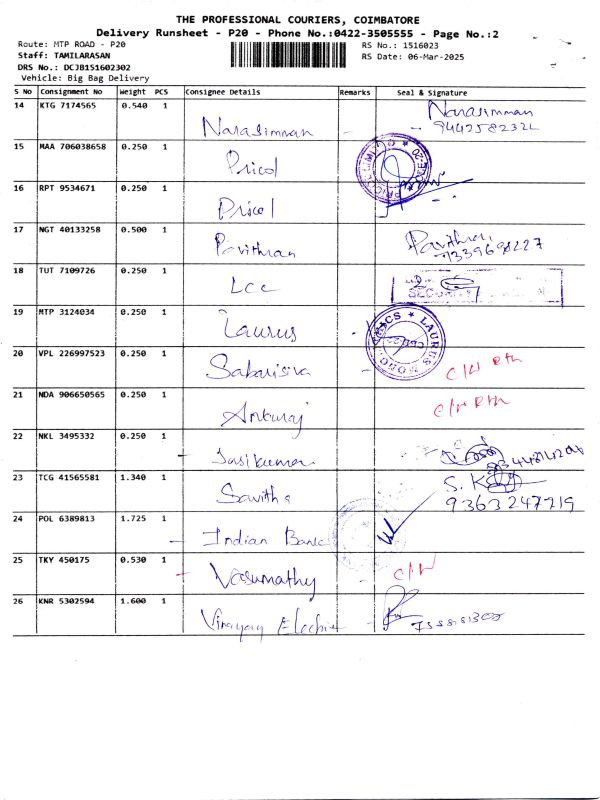 THE PROFESSIONAL COURIERS, COIMBATORE
Delivery Runsheet - P20 - Phone No.:0422-3505555 - Page No.:2
Route: MTP ROAD - P20 RS No.: 1516023
Staff: TAMILARASAN RS Date: 06-Mar-2025
DRS No.: DCJB151602302
Vehicle: Big Bag Delivery
S No Consignment No Weight PCS Consignee Details Remarks Seal & Signature
14 KTG 7174565 0.540 1 Narasimman Narasimman
15 MAA 706038658 0.250 1 Pricol
16 RPT 9534671 0.250 1 Pricol
17 NGT 40133258 0.500 1 Pavithran Pavithran
18 TUT 7109726 0.250 1 Lcc
SECURITY
19 MTP 3124034 0.250 1 Taurus LAURUS
20 VPL 226997523 0.250 1 Sabarisiva C/H Rtn
21 NDA 906650565 0.250 1 Ankuraj C/H Rtn
22 NKL 3495332 0.250 1 Sasikumar
23 TCG 41565581 1.340 1 Savitha
9363247219
24 POL 6389813 1.725 1 Indian Bank
25 TKY 450175 0.530 1 Vasumathy C/H
26 KNR 5302594 1.600 1